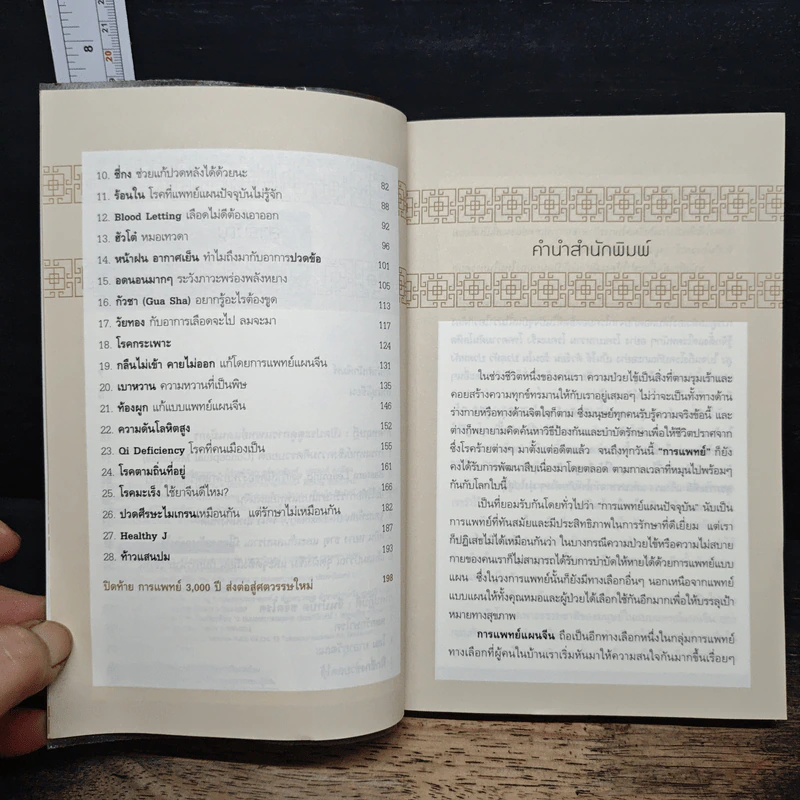 8
20
21
10. ชี่กง ช่วยแก้ปวดหลังได้ด้วยนะ 82
11. ร้อนใน โรคที่แพทย์แผนปัจจุบันไม่รู้จัก 88
12. Blood Letting เลือดไม่ดีต้องเอาออก 92
13. ฮัวโต๋ หมอเทวดา 96
14. หน้าฝน อากาศเย็น ทำไมถึงมากับอาการปวดข้อ 101
15. อดนอนมากๆ ระวังภาวะพร่องพลังหยาง 105
16. กัวซา (Gua Sha) อยากรู้อะไรต้องขูด 113
17. วัยทอง กับอาการเลือดจะไป ลมจะมา 117
18. โรคกระเพาะ 124
19. กลืนไม่เข้า คายไม่ออก แก้โดยการแพทย์แผนจีน 131
20. เบาหวาน ความหวานที่เป็นพิษ 135
21. ท้องผูก แก้แบบแพทย์แผนจีน 146
22. ความดันโลหิตสูง 152
23. Qi Deficiency โรคที่คนเมืองเป็น 155
24. โรคตามถิ่นที่อยู่ 160
25. โรคมะเร็ง ใช้ยาจีนดีไหม? 166
26. ปวดศีรษะไมเกรนเหมือนกัน แต่รักษาไม่เหมือนกัน 182
27. Healthy J 187
28. ท้าวแสนปม 193
ปิดท้าย การแพทย์ 3,000 ปี ส่งต่อสู่ศตวรรษใหม่ 198
คำนำสำนักพิมพ์
ในช่วงชีวิตหนึ่งของคนเรา ความป่วยไข้เป็นสิ่งที่ตามรุมเร้าและ
คอยสร้างความทุกข์ทรมานให้กับเราอยู่เสมอๆ ไม่ว่าจะเป็นทั้งทางด้าน
ร่างกายหรือทางด้านจิตใจก็ตาม ซึ่งมนุษย์ทุกคนรับรู้ความจริงข้อนี้ และ
ต่างก็พยายามคิดค้นหาวิธีป้องกันและบำบัดรักษาเพื่อให้ชีวิตปราศจาก
ซึ่งโรคร้ายต่างๆ มาตั้งแต่อดีตแล้ว จนถึงทุกวันนี้ "การแพทย์" ก็ยัง
คงได้รับการพัฒนาสืบเนื่องมาโดยตลอด ตามกาลเวลาที่หมุนไปพร้อมๆ
กันกับโลกใบนี้
เป็นที่ยอมรับกันโดยทั่วไปว่า "การแพทย์แผนปัจจุบัน" นับเป็น
การแพทย์ที่ทันสมัยและมีประสิทธิภาพในการรักษาที่ดีเยี่ยม แต่เรา
ก็ปฏิเสธไม่ได้เหมือนกันว่า ในบางกรณีความป่วยไข้หรือความไม่สบาย
กายของคนเราก็ไม่สามารถได้รับการบำบัดให้หายได้ด้วยการแพทย์แบบ
แผน ซึ่งในวงการแพทย์นั้นก็ยังมีทางเลือกอื่นๆ นอกเหนือจากแพทย์
แบบแผนให้ทั้งคุณหมอและผู้ป่วยได้เลือกใช้กันอีกมากเพื่อให้บรรลุเป้า
หมายทางสุขภาพ
การแพทย์แผนจีน ถือเป็นอีกทางเลือกหนึ่งในกลุ่มการแพทย์
ทางเลือกที่ผู้คนในบ้านเราเริ่มหันมาให้ความสนใจกันมากขึ้นเรื่อยๆ